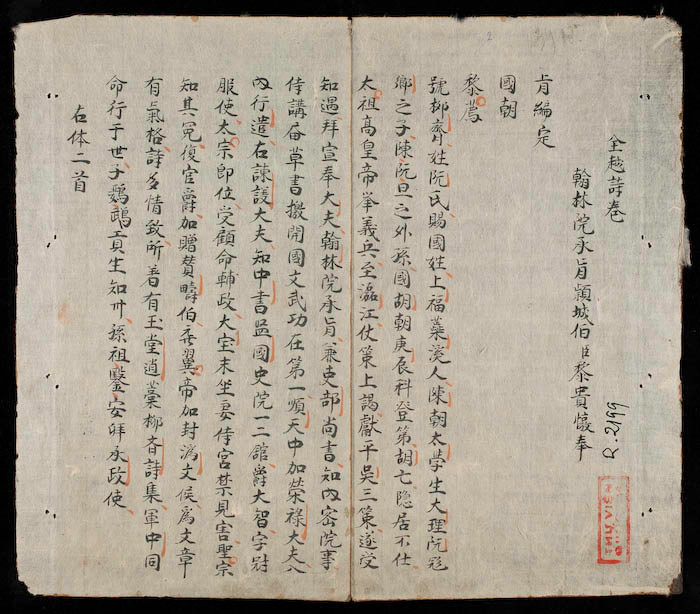 全越詩卷
翰林院承旨頴城伯臣黎貴惇奉
旨編定
國朝
黎廌
號抑齊姓阮氏賜國姓上福蘂溪人陳朝太學生大理阮飛
卿之子陳阮旦之外孫國胡朝庚辰科登第胡亡隱居不仕
太祖高皇帝举義兵至瀘江仗策上謁獻平吳三策遂受
知遇拜宣奉大夫翰林院承旨兼吏部尚書知內密院事
侍講奋草書撥開國文武功在第一順天中加荣祿大夫入
內行遣右諫議大夫知中書监國史院一二舘爵大智字冠
服使太宗即位受顧命輔政大宝末坐妾侍宮禁見害聖宗
知其冤復官爵加贈賛疇伯翼帝加封濟文侯爲文章
有氣格詩多情致所着有玉堂遺藁抑斉詩集軍中詞
命行于世子鸚鵡員生知州孫祖鑒安拜承政使
右体二首
R.2199
THƯ VIỆN